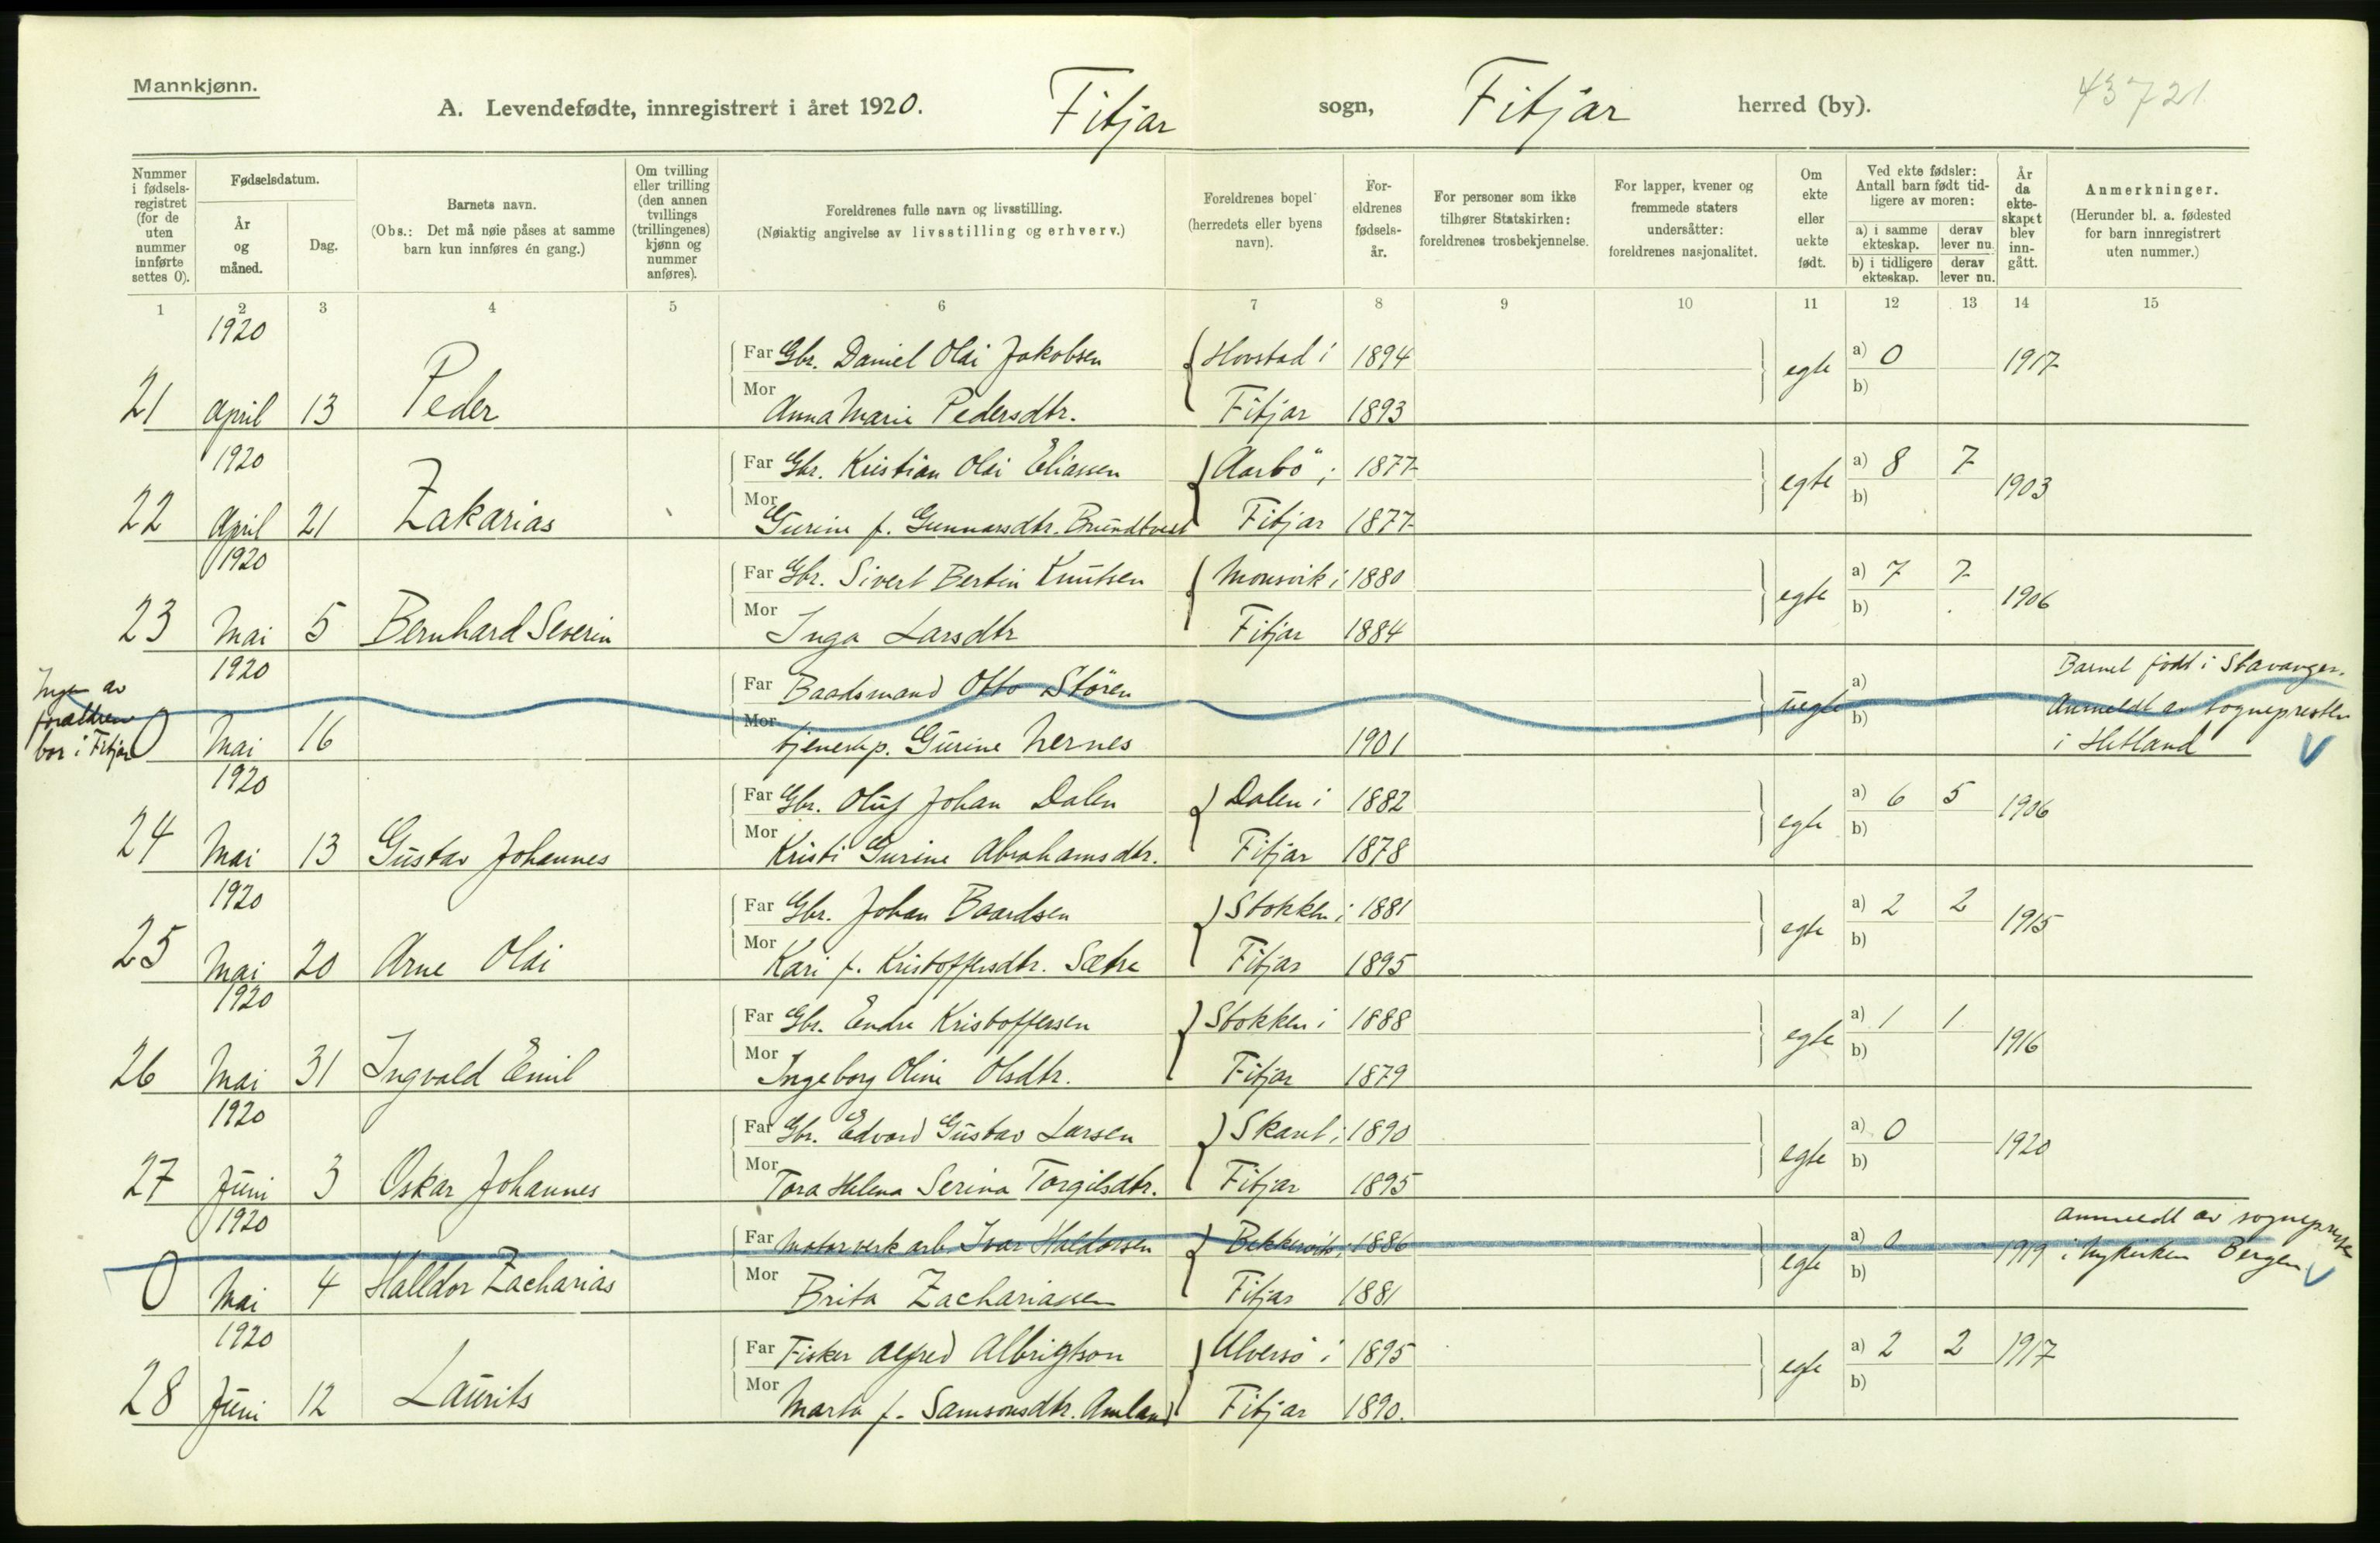 Mannkjønn.
A. Levendefødte, innregistrert i året 1920. Fitjar sogn, Fitjar herred (by). 43721
Nummer i fødselsregistret (for de uten nummer innførte settes 0).
Fødselsdatum.
År og måned.
Dag.
Barnets navn.
(Obs.: Det må nøie påses at samme barn kun innføres én gang.)
Om tvilling eller trilling (den annen tvillings (trillingenes) kjønn og nummer anføres).
Foreldrenes fulle navn og livsstilling.
(Nøiaktig angivelse av livsstilling og erhverv.)
Foreldrenes bopel
(herredets eller byens navn).
Foreldrenes fødselsår.
For personer som ikke tilhører Statskirken: foreldrenes trosbekjennelse.
For lapper, kvener og fremmede staters undersåtter: foreldrenes nasjonalitet.
Om ekte eller uekte født.
Ved ekte fødsler: Antall barn født tidligere av moren:
a) i samme ekteskap.
derav lever nu.
b) i tidligere ekteskap.
derav lever nu.
År da ekteskapet blev inngått.
Anmerkninger.
(Herunder bl. a. fødested for barn innregistrert uten nummer.)
1 2 3 4 5 6 7 8 9 10 11 12 13 14 15
1920
Far Gbr. Daniel Olai Jakobsen Hovstad i 1894 a) 0 1917
21 April 13 Peder Mor Anna Marie Pedersdtr. Fitjar 1893 egte b)
1920
Far Gbr. Kristian Olai Eliassen Aarbö i 1877 a) 8 7 1903
22 April 21 Zakarias Mor Gurine f. Gunnarsdtr. Brundtvest Fitjar 1877 egte b)
1920
Far Gbr. Sivert Bertin Knutsen Monsvik i 1880 a) 7 7 1906
23 Mai 5 Bernhard Severin Mor Inga Larsdtr Fitjar 1884 egte b)
1920
Ingen av forældrene bor i Fitjar
Far Baadsmand Otto Stören a) Barnet født i Stavanger.
0 Mai 16 Mor tjenerp. Gurine Nernes 1901 uegte b) Anmeldt av sognepresten i Hetland
1920
Far Gbr. Oluf Johan Dalen Dalen i 1882 a) 6 5 1906
24 Mai 13 Gustav Johannes Mor Kristi Gurine Abrahamsdtr. Fitjar 1878 egte b)
1920
Far Gbr. Johan Baardsen Stokken i 1881 a) 2 2 1915
25 Mai 20 Arne Olai Mor Kari f. Kristoffersdtr. Sætre Fitjar 1895 egte b)
1920
Far Gbr. Endre Kristoffersen Stokken i 1888 a) 1 1 1916
26 Mai 31 Ingvald Emil Mor Ingeborg Oline Olsdtr. Fitjar 1879 egte b)
1920
Far Gbr. Edvard Gustav Larsen i 1890 a) 0 1920
27 Juni 3 Oskar Johannes Mor Tora Helena Serina Torgilsdtr. Fitjar 1895 egte b)
1920
Far Motorverk arb. Ivar Haldorsen Bekkervik i 1886 a) 0 1919 Anmeldt av sognepresten i Nykirken Bergen.
0 Mai 4 Halldor Zacharias Mor Brita Zachariassen Fitjar 1881 egte b)
1920
Far Fisker Alfred Albrigtson i 1895 a) 2 2 1917
28 Juni 12 Laurits Mor Marta f. Samsonsdtr. Amland Fitjar 1890. egte b)